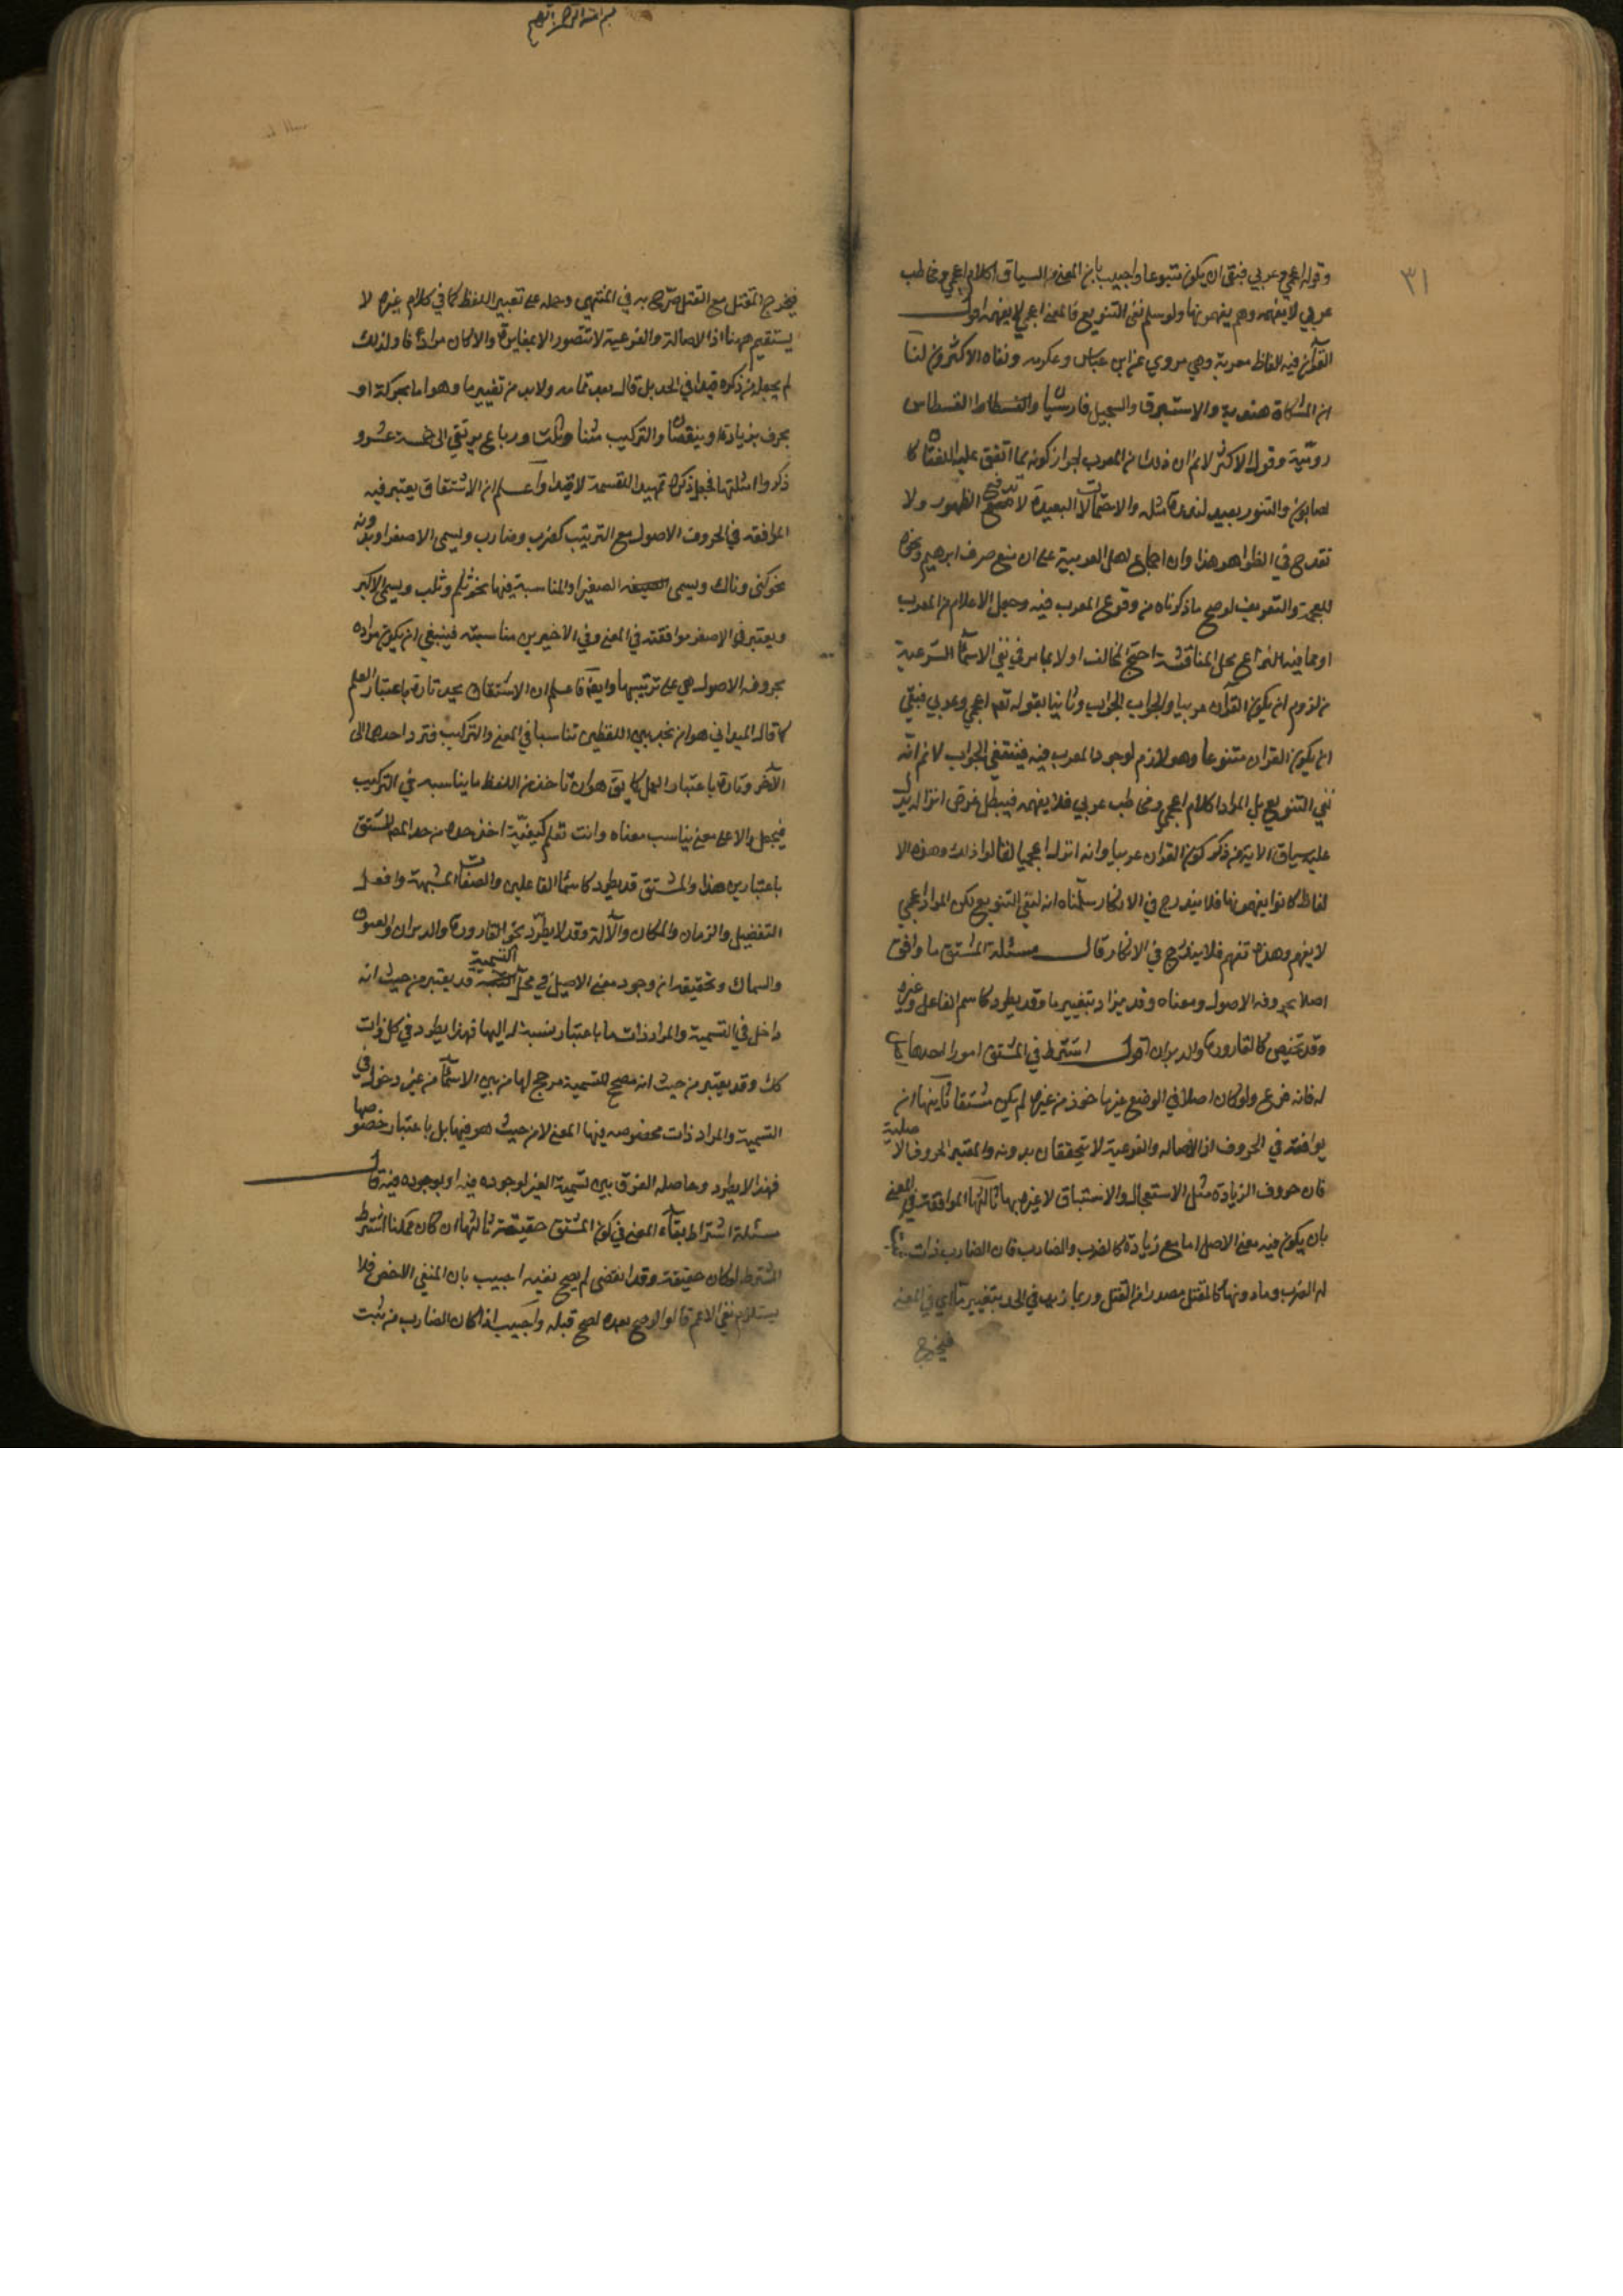 ٣١
وقوله اعجمي وعربي فنفى ان يكون متنوعا واجيب بان المعنى من السياق اكلام اعجمي ومخاطب
عربي لا يفهمه وهم يفهمونها ولو سلم نفي التنويع فالمعنى اعجمي لا يفهمه اقول
القرآن فيه الفاظ معربة وهي مروي عن ابن عباس وعكرمه ونفاه الاكثرون لنا
ان المشكاة هندية والاستبرق والسجيل فارسيتان والقسطاط القسطاس
رومية وقول الاكثر لانم ان ذلك من المعرب لجواز كونه مما اتفق عليه اللغتان كا
لصابون والتنور بعيد لندرة مثله والاحتمالات البعيدة لا تدفع الظهور ولا
تقدح في الظواهر هذا وان اجماع اهل العربية على ان منع صرف ابرهيم ونحوه
للعجمة والتعريف لوضح ما ذكرناه من وقوع المعرب فيه وجعل الاعلام من المعرب
او مما فيه النزاع محل المناقشة احتج المخالف اولا بما مر في نفي الاسماء الشرعية
من لزوم ان يكون القرآن عربيا والجواب الجواب وثانيا بقوله تعم اعجمي وعربي فنفى
ان يكون القران متنوعا وهو لازم لوجود المعرب فيه فينتفي الجواب لانم انه
نفي التنويع بل المراد اكلام اعجمي ومخاطب عربي فلا يفهمه فيبطل غرض انزاله يدل
عليه سياق الاية من ذكر كون القران عربيا وانه انزله اعجميا لقالوا ذلك وهذه الا
لفاظ كانوا يفهمونها فلا يندرج في الانكار سلمناه انه لنفي التنويع لكن المراد اعجمي
لا يفهم وهذه تفهم فلا يندرج في الانكار قال مسئلة المشتق ما وافق
اصلا بحروفه الاصول ومعناه وقد يزاد بتغيير ما وقد يطرد كاسم الفاعل وغيره
وقد يختص كالقارورة والدبران اقول اشترط في المشتق امورا احدها
له فانه فرع ولو كان اصلا في الوضع غير ماخوذ من غيره لم يكن مشتقا ثانيها ان
يوافقه في الحروف اذ الاصاله والفرعية لا يتحققان بدونه والمعتبر الحروف الاصلية
فان حروف الزيادة مثل الاستعجال والاستباق لا عبرة بها ثالثها الموافقة في المعنى
بان يكون فيه معنى الاصل اما مع زيادة كالضرب والضارب فان الضارب ذات
له الضرب وما دونها كالمقتل مصدرا من القتل وربما زيد في الحد بتغيير ما اي في المعنى
فيخرج
بسم الله الرحمن الرحيم
فيخرج المقتل مع القتل صرح به في المنتهى وحمله على تغيير اللفظ كما في كلام غيره لا
يستقيم ههنا اذ الاصالة والفرعية لا تتصور الا بمغايرة والا كان مرادفا ولذلك
لم يجعله من ذكره قيدا في الحد بل قال بعد تمامه ولا بد من تغيير ما وهو اما بحركة او
بحرف بزيادة او بنقصان والتركيب مثنا وثلث ورباع يرتقي الى خمسة عشر و
ذكروا امثلتها فجعل ذكره تمهيدا للقسمة لا قيدا واعلم ان الاشتقاق يعتبر فيه
الموافقه في الحروف الاصول مع الترتيب كضرب وضارب ويسمى الاصغر او بدونه
نحو كنى وناك ويسمى الصغير او المناسبة فيها نحو ثلم وثلب ويسمى الاكبر
ويعتبر في الاصغر موافقته في المعنى وفي الاخيرين مناسبته فينبغي ان يكون مراده
بحروفه الاصول هي على ترتيبها وايضا فاعلم ان الاشتقاق يحد تارة باعتبار العلم
كما قال الميداني هو ان تجد بين اللفظين تناسبا في المعنى والتركيب فترد احدهما الى
الآخر وتارة باعتبار العمل كما يق هو ان تاخذ من اللفظ ما يناسبه في التركيب
فيجعل دالا على معنى يناسب معناه وانت تعلم كيفية اخذ حده من حد المصـ المشتق
باعتبارين هذا والمشتق قد يطرد كاسماء الفاعلين والصفات المشبهة وافعل
التفضيل والزمان والمكان والآلة وقد لا يطرد نحو القارورة والدبران والعيوق
والسماك وتحقيقه ان وجود معنى الاصل في محل التسمية قد يعتبر من حيث انه
داخل في التسمية والمراد ذات ما باعتبار نسبة له اليها فهذا يطرد في كل ذات
كك وقد يعتبر من حيث انه مصحح للتسمية مرجح لها من بين الاسماء من غير دخوله في
التسمية والمراد ذات مخصوصه فيها المعنى لا من حيث هو فيها بل باعتبار خصوصها
فهذا لا يطرد وحاصله الفرق بين تسمية الغير لوجوده فيه او بوجوده فيه قال
مسئلة اشتراط بقاء المعنى في كون المشتق حقيقة ثالثها ان كان ممكنا اشترط
المشترط لو كان حقيقة وقد انقضى لم يصح نفيه اجيب بان المنفي الاخص فلا
يستلزم نفي الاعم قالوا لو صح بعده لصح قبله واجيب اذا كان الضارب من ثبت